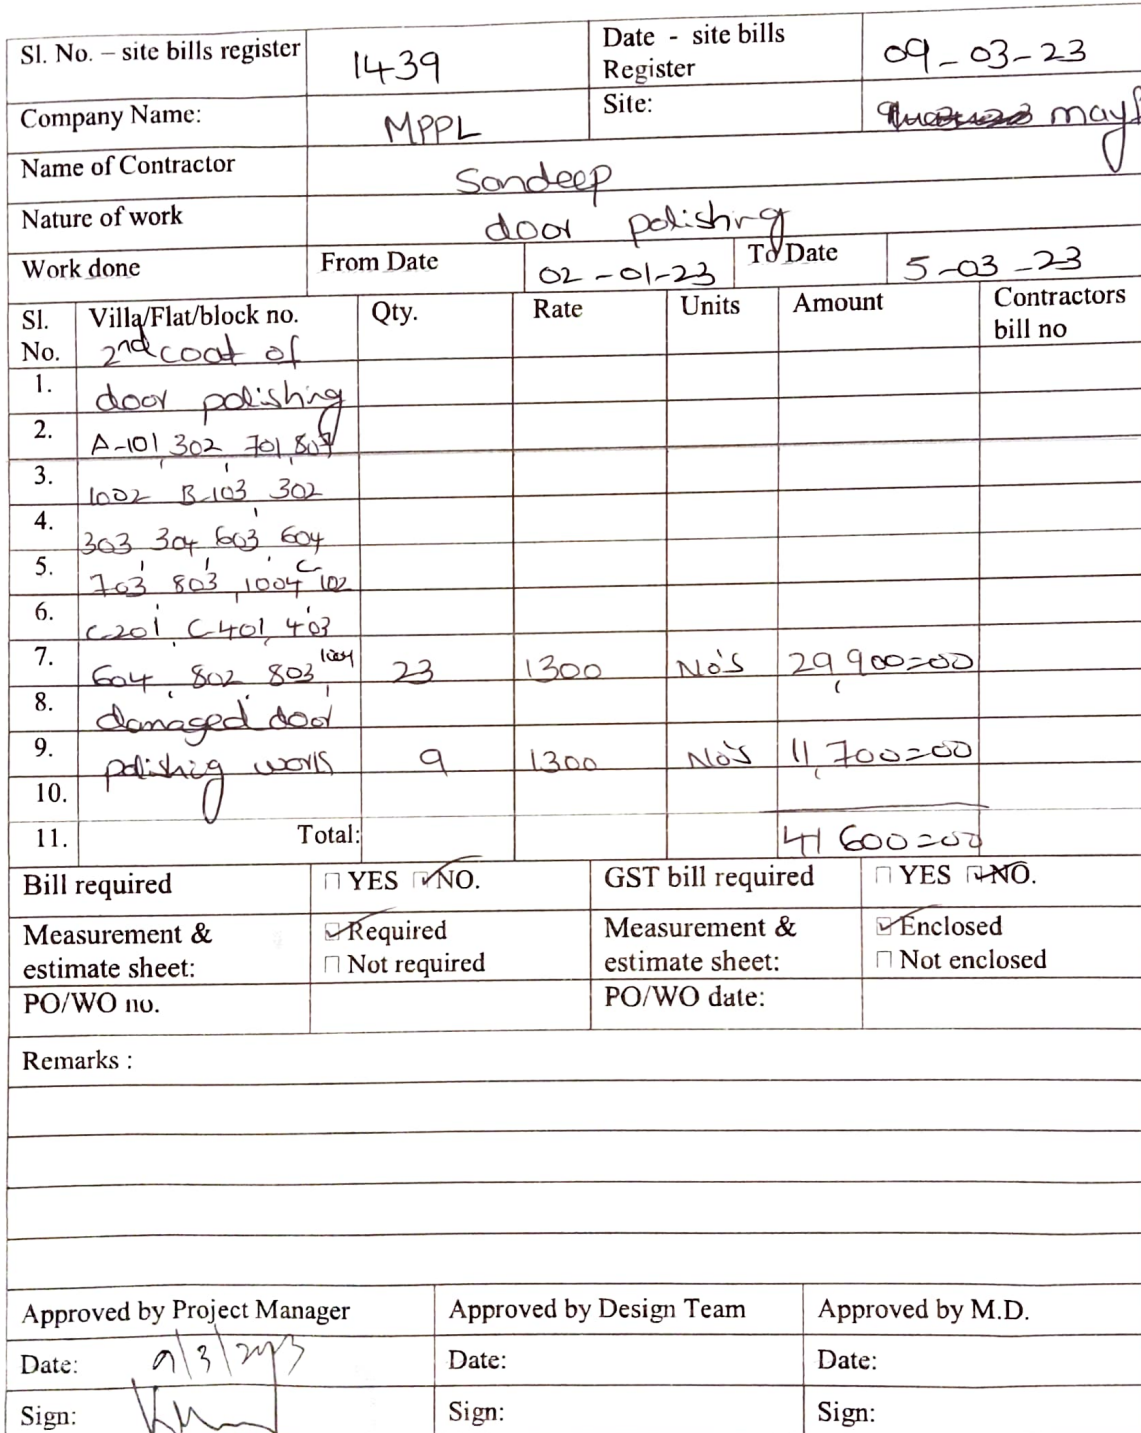 Sl. No. – site bills register 1439 Date - site bills Register 09-03-23
Company Name: MPPL Site:
Name of Contractor Sandeep
Nature of work door polishing
Work done From Date 02-01-23 To Date 5-03-23
Sl. No. Villa/Flat/block no. Qty. Rate Units Amount Contractors bill no
2nd coat of
1. door polishing
2. A-101, 302, 701, 807
3. 1002, B-103, 302
4. 303, 304, 603, 604
5. 703, 803, 1004, C-102
6. C-201, C-401, 403
7. 604, 802, 803, 1004 23 1300 No's 29,900=00
8. damaged door
9. polishig work 9 1300 No's 11,700=00
10.
11. Total: 41600=00
Bill required YES NO. GST bill required YES NO.
Measurement & estimate sheet: Required Measurement & estimate sheet: Enclosed
Not required Not enclosed
PO/WO no. PO/WO date:
Remarks :
Approved by Project Manager Approved by Design Team Approved by M.D.
Date: 9/3/2023 Date: Date:
Sign: Sign: Sign: